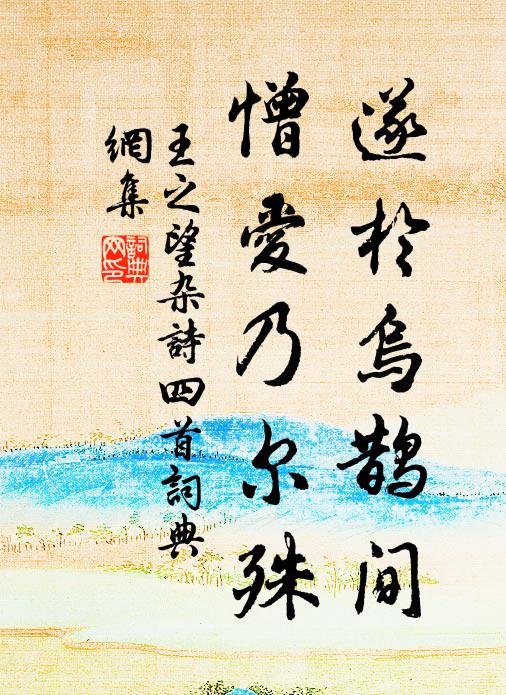 遂於烏鵲间
憎愛乃尔殊
王之望杂詩四首詞典
網集
詞典
网印